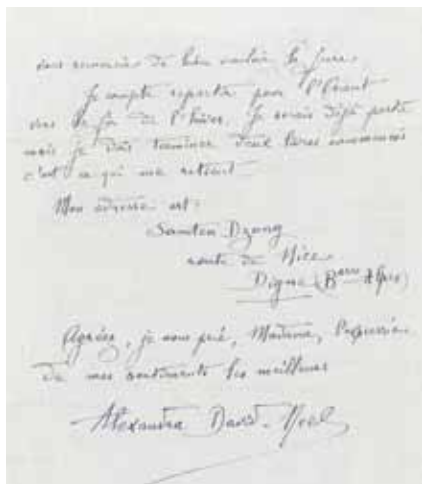 vous remercie de bien vouloir le faire.
Je compte repartir pour l'Orient
vers la fin de l'hiver. Je serais déjà partie
mais je dois terminer deux livres commencés
c'est ce qui me retient.
Mon adresse est:
Samten Dzong
route de Nice
Digne (Basses Alpes)
Agréez, je vous prie, Madame, l'expression
de mes sentiments les meilleurs
Alexandra David-Neel